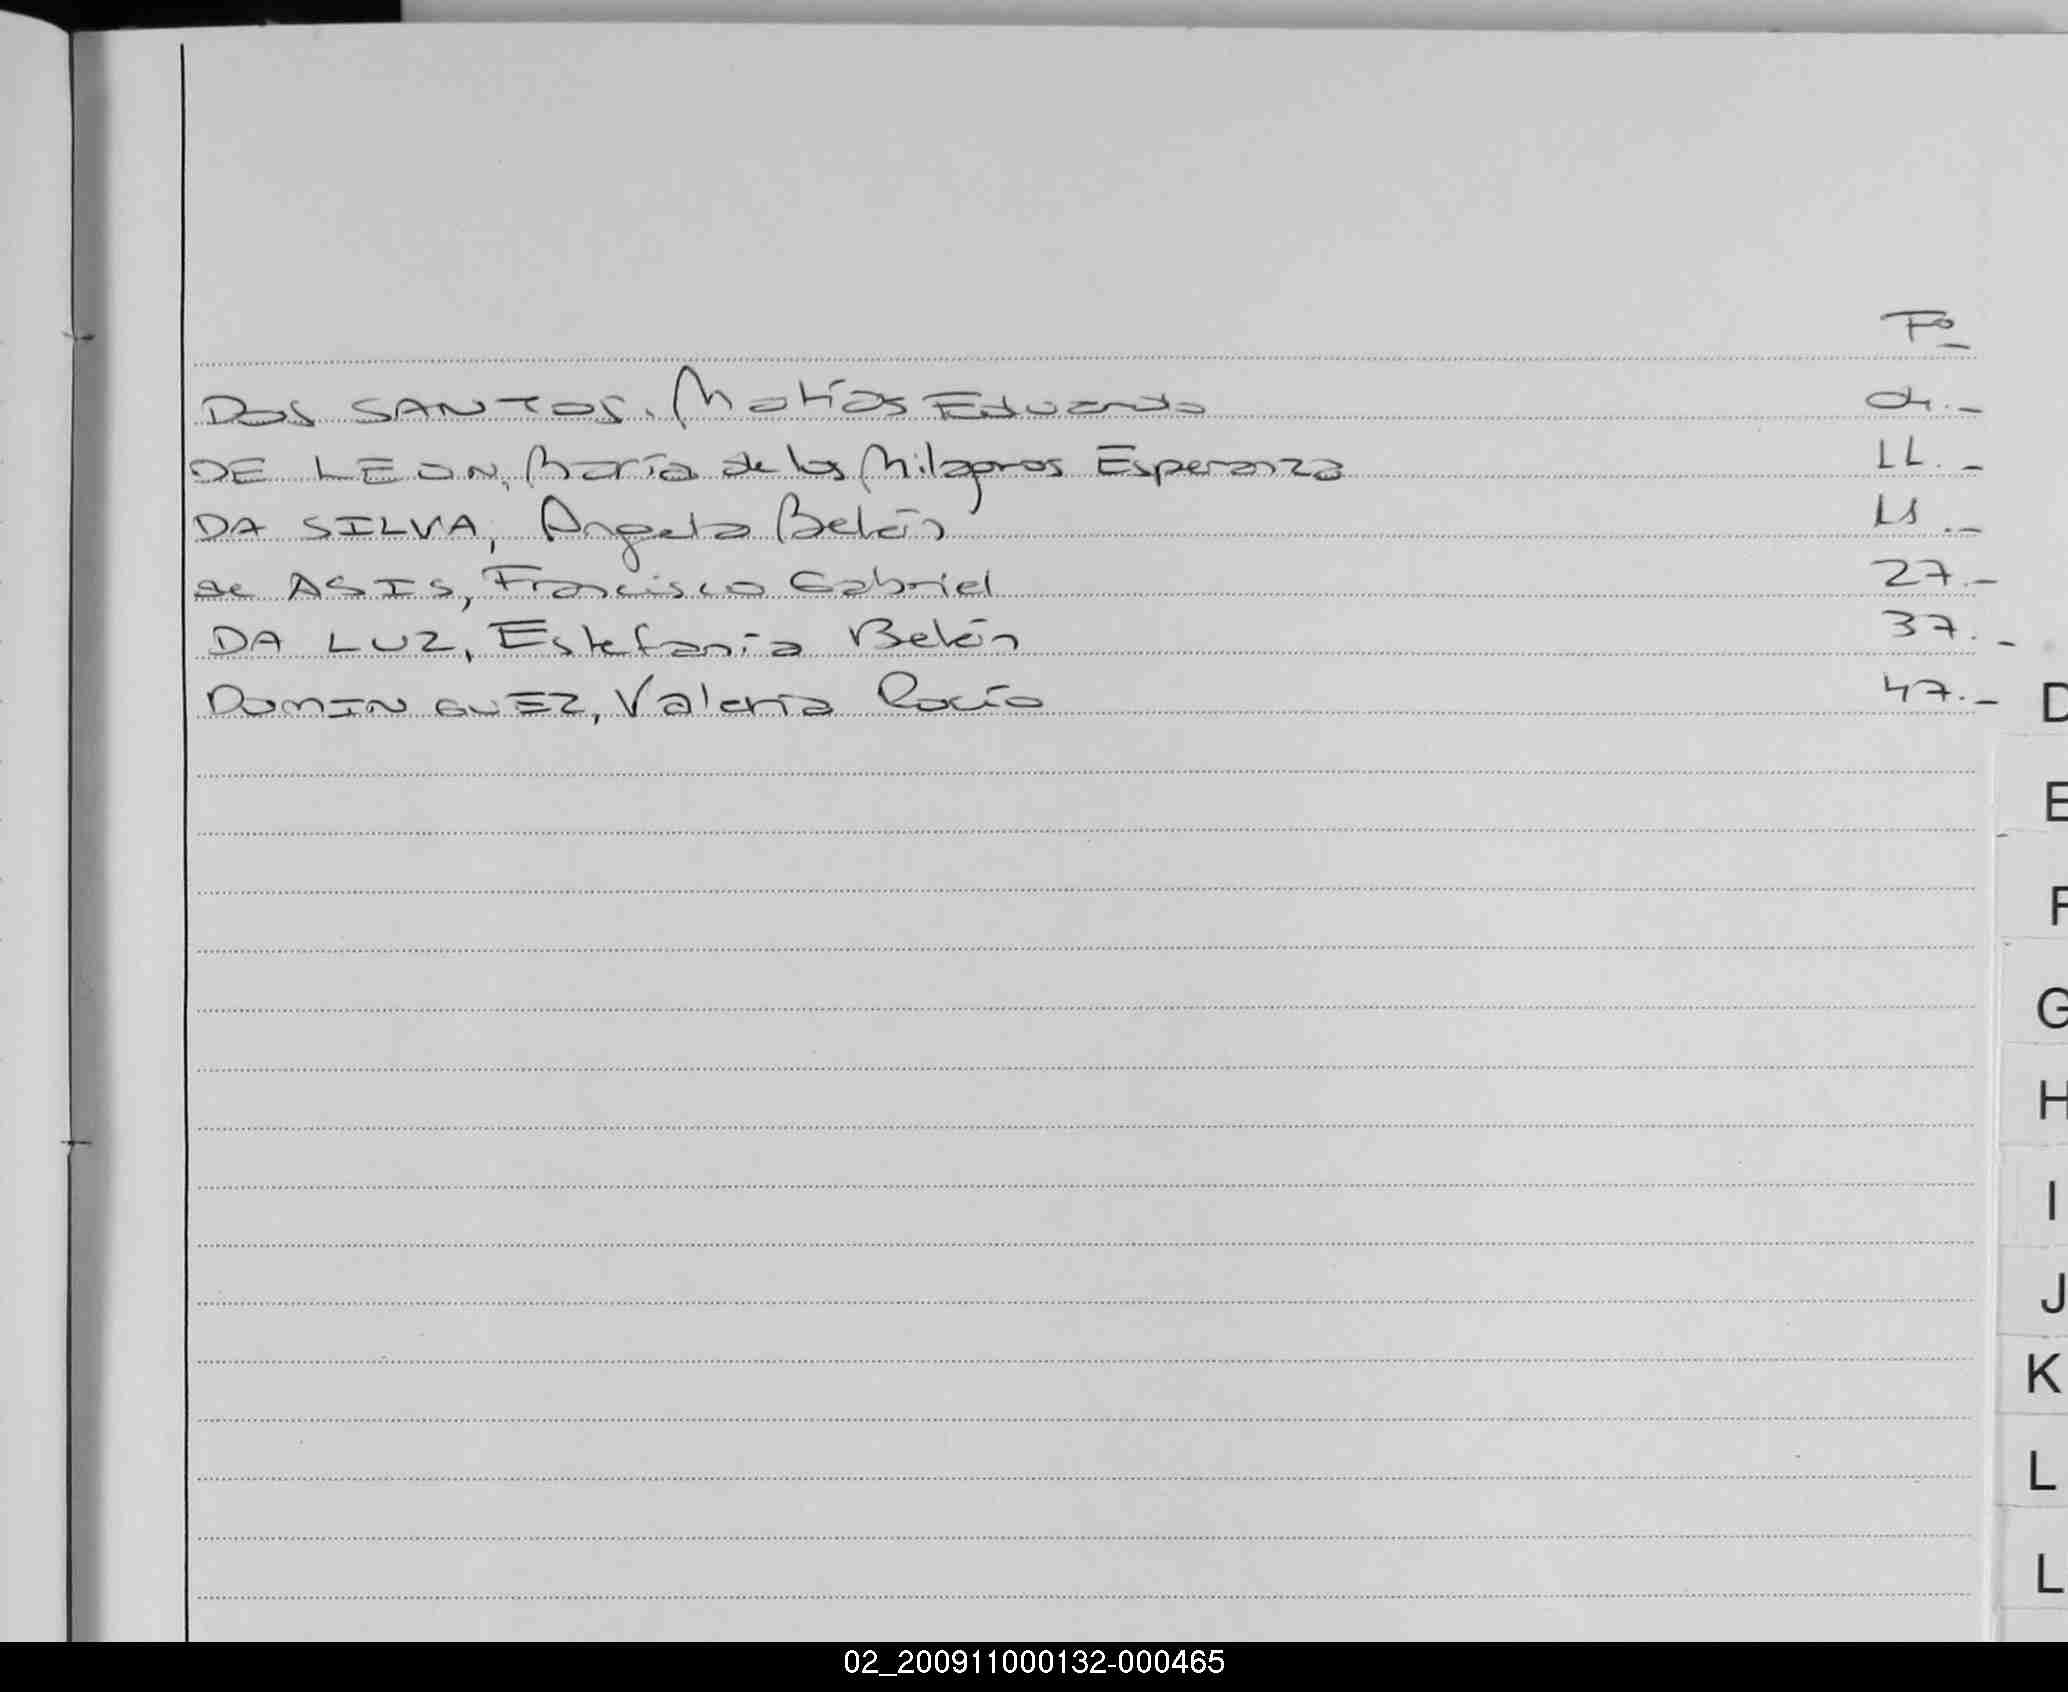 Fo
DOS SANTOS, Matías Eduardo 04.-
DE LEON, María de los Milagros Esperanza 11.-
DA SILVA, Angela Belén 15.-
de ASIS, Francisco Gabriel 27.-
DA LUZ, Estefanía Belén 37.-
DOMINGUEZ, Valeria Rocío 47.-
D
E
F
G
H
I
J
K
L
L
02_200911000132-000465